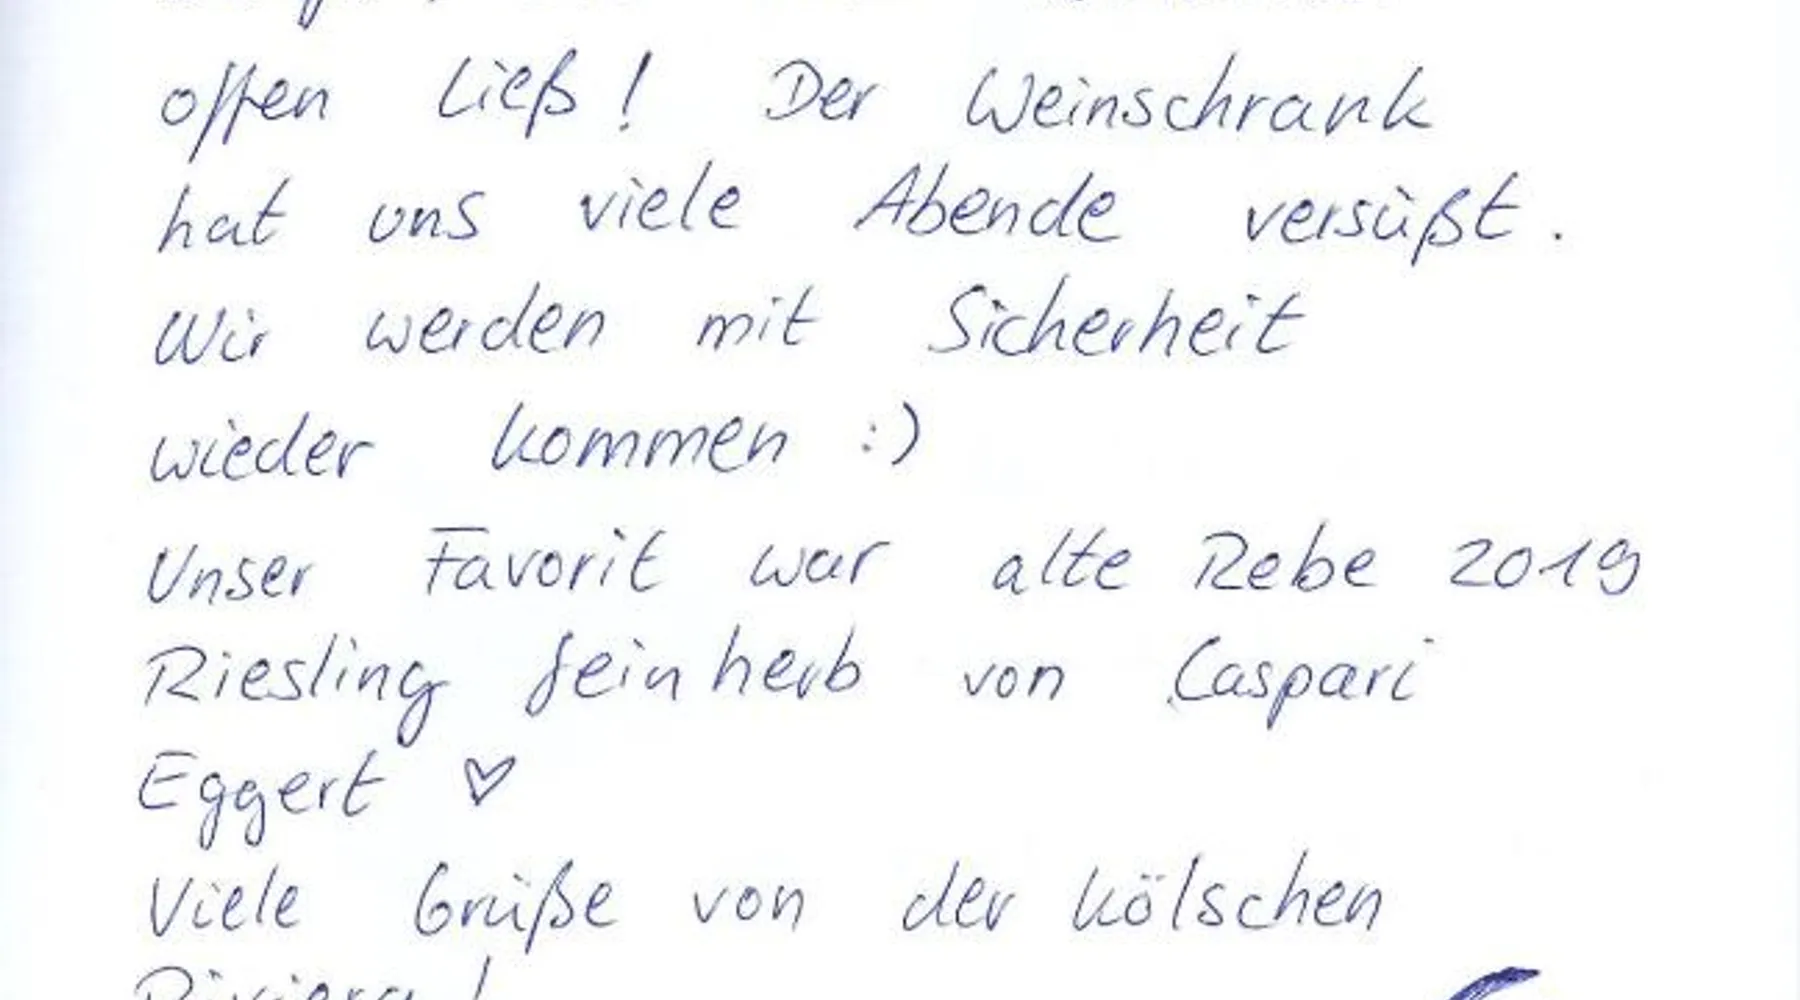 offen ließ! Der Weinschrank
hat uns viele Abende versüßt.
Wir werden mit Sicherheit
wieder kommen :)
Unser Favorit war alte Rebe 2019
Riesling feinherb von Caspari
Eggert ♡
Viele Grüße von der kölschen
Riviera!